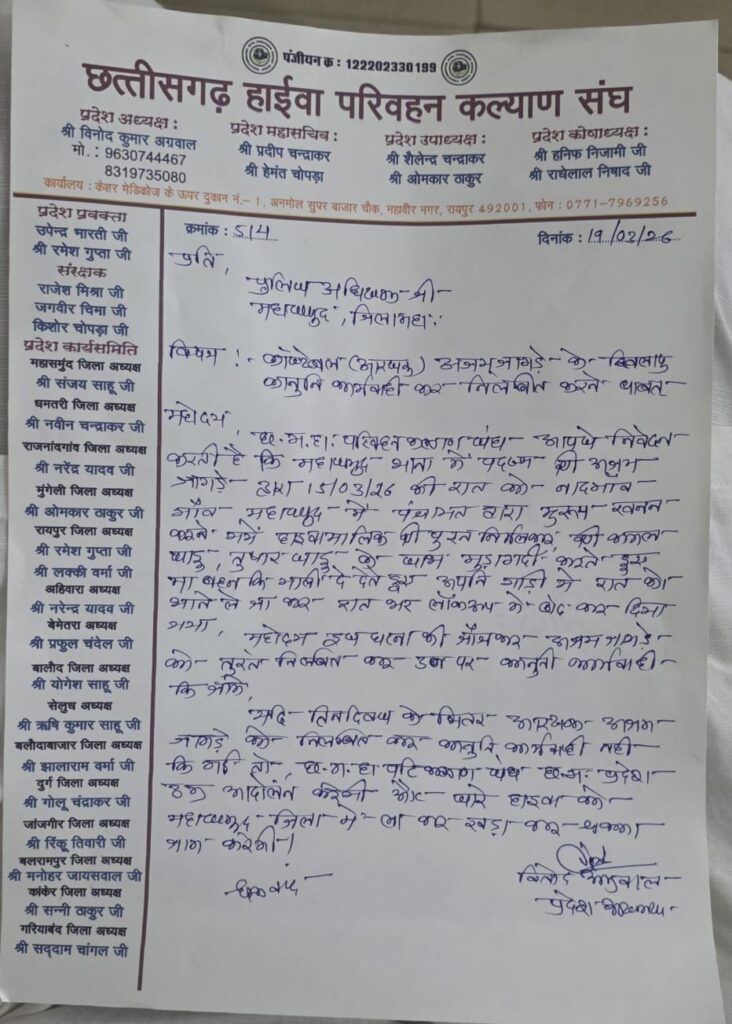 पंजीयन क्र : 122202330199
छत्तीसगढ़ हाईवा परिवहन कल्याण संघ
प्रदेश अध्यक्ष :
श्री विनोद कुमार अग्रवाल
मो. : 9630744467
8319735080
प्रदेश महासचिव :
श्री प्रदीप चन्द्राकर
श्री हेमंत चोपड़ा
प्रदेश उपाध्यक्ष :
श्री शैलेन्द्र चन्द्राकर
श्री ओमकार ठाकुर
प्रदेश कोषाध्यक्ष :
श्री हनिफ निजामी जी
श्री राधेलाल निषाद जी
कार्यालय : केशर मेडिकोज के ऊपर दुकान नं.- 1, अनमोल सुपर बाजार चौक, महावीर नगर, रायपुर 492001, फोन : 0771-7969256
प्रदेश प्रवक्ता
उपेन्द्र भारती जी
श्री रमेश गुप्ता जी
संरक्षक
राजेश मिश्रा जी
जगवीर चिमा जी
किशोर चोपड़ा जी
प्रदेश कार्यसमिति
महासमुंद जिला अध्यक्ष
श्री संजय साहू जी
धमतरी जिला अध्यक्ष
श्री नवीन चन्द्राकर जी
राजनांदगांव जिला अध्यक्ष
श्री नरेंद्र यादव जी
मुंगेली जिला अध्यक्ष
श्री ओमकार ठाकुर जी
रायपुर जिला अध्यक्ष
श्री रमेश गुप्ता जी
श्री लक्की वर्मा जी
अहिवारा अध्यक्ष
श्री नरेन्द्र यादव जी
बेमेतरा अध्यक्ष
श्री प्रफुल चंदेल जी
बालौद जिला अध्यक्ष
श्री योगेश साहू जी
सेलुध अध्यक्ष
श्री ऋषि कुमार साहू जी
बलौदाबाजार जिला अध्यक्ष
श्री झालाराम वर्मा जी
दुर्ग जिला अध्यक्ष
श्री गोलू चंद्राकर जी
जांजगीर जिला अध्यक्ष
श्री रिंकू तिवारी जी
बलरामपुर जिला अध्यक्ष
श्री मनोहर जायसवाल जी
कांकेर जिला अध्यक्ष
श्री सन्नी ठाकुर जी
गरियाबंद जिला अध्यक्ष
श्री सद्दाम चांगल जी
क्रमांक : 514
दिनांक : 19/03/26
प्रति,
पुलिस अधिक्षक श्री
महासमुंद, जिला महा.
विषय :- कांस्टेबल (आरक्षक) जांगड़े के खिलाफ
कानुनि कार्यवाही कर निलंबित करने बाबत
महोदय,
छ.ग.हा. परिवहन कल्याण संघ आपसे निवेदन
करती है कि महासमुंद थाना में पदस्थ श्री
जांगड़े द्वारा 15/03/26 की रात को नादगांव
गांव महासमुंद में पंचायत द्वारा मुरुम खनन
करने गये हाइवा मालिक श्री निर्मलकर, श्री कमल
साहू, तुषार साहू के साथ करते हुए
मा बहन कि गाली देते हुए अपनि गाड़ी में रात को
थाने ले जा कर रात भर लॉकअप में बंद कर दिया
गया,
महोदय इस घटना की जाँच कर जांगड़े
को तुरंत निलंबित कर उस पर कानुनी कार्यवाही
कि जाये,
यदि तिन दिवस के भितर आरक्षक
जांगड़े को निलंबित कर कानुनि कार्यवाही नही
कि गई तो, छ.ग.हा. संघ छ.ग. प्रदेश
उग्र आदोलन करेगी और सारे हाइवा को
महासमुंद जिला में ला कर खड़ा कर चक्का
जाम करेगी।
धन्यवाद
विनोद अग्रवाल
प्रदेश अध्यक्ष